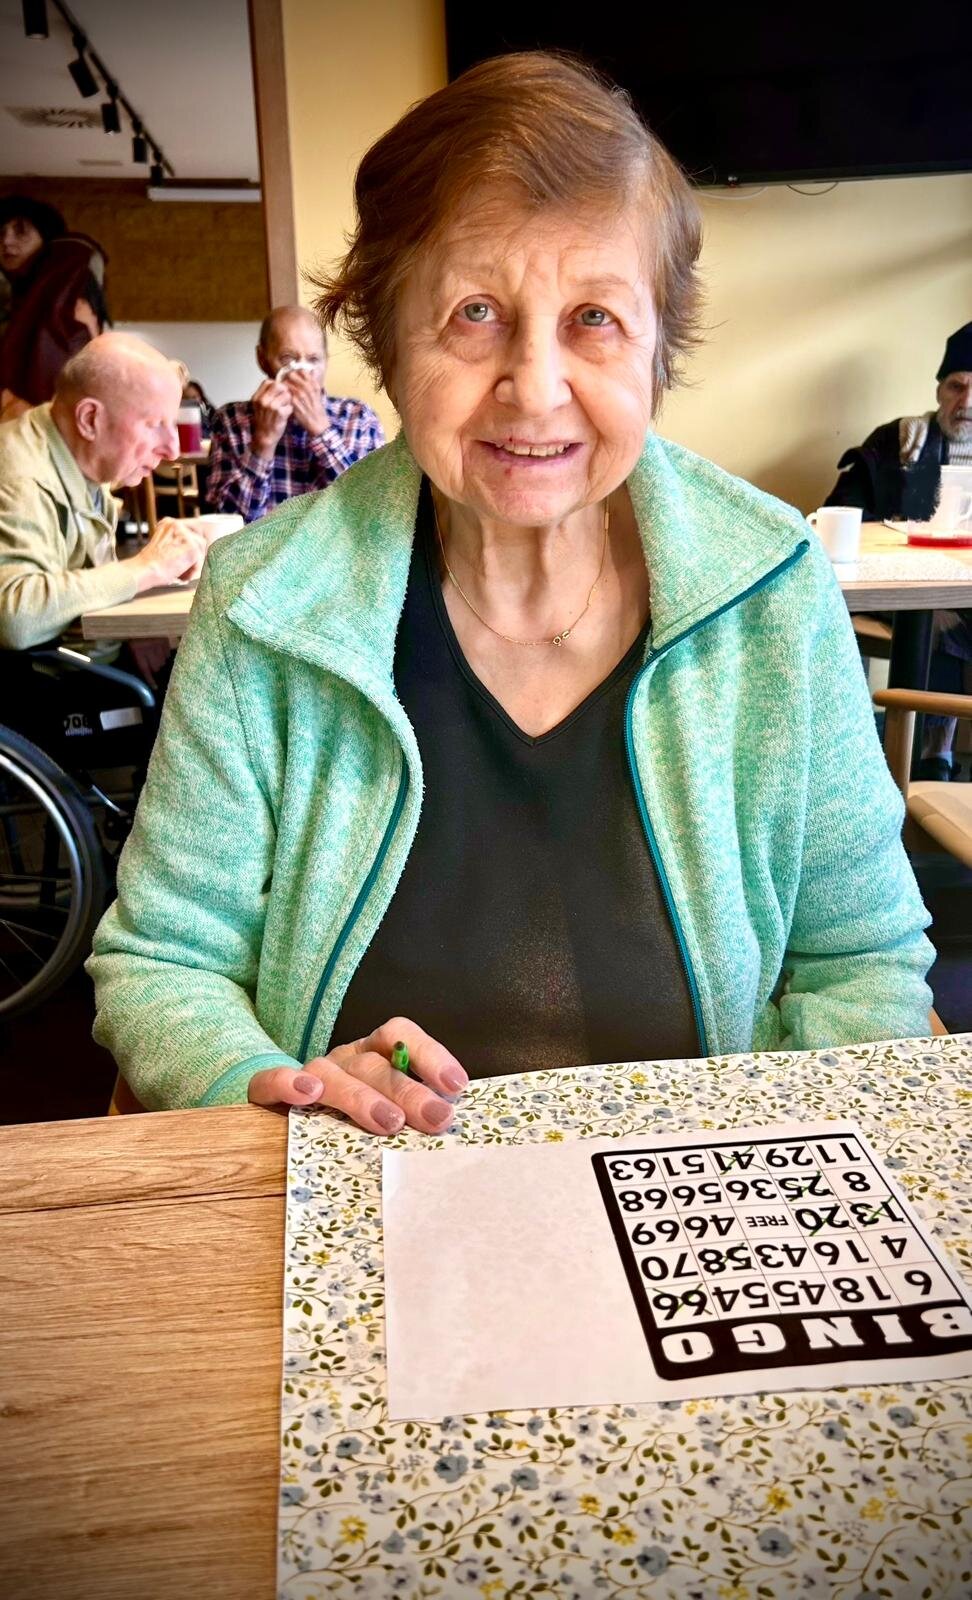 BINGO
6 18 45 54 66
4 16 43 58 70
13 20 FREE 46 69
8 25 36 56 68
11 29 41 51 63